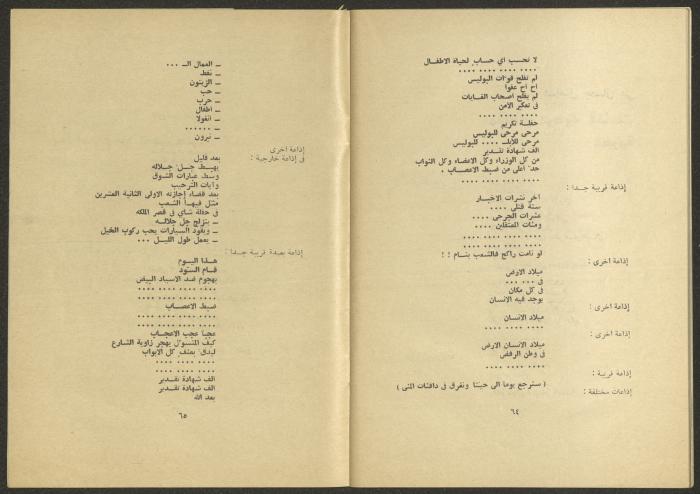 لا تحسب أي حساب لحياة الاطفال
.... .... .... ....
لم تفلح قوات البوليس
اح اح عفوا
لم يفلح أصحاب الغايات
في تعكير الأمن
.... .... ....
حفلة تكريم
مرحى مرحى للبوليس
مرحى للأبلـ .... للبوليس
الف شهادة تقدير
من كل الوزراء وكل الاعضاء وكل النواب
حد أعلى من ضبط الاعصاب .
.... .... .... ....
إذاعة قريبة جدا :
آخر نشرات الاخبار
ستة قتلى ....
عشرات الجرحى ....
ومئات المعتقلين ....
.... .... .... ....
.... .... .... ....
لو نامت راكح فالشعب ينام ! !
إذاعة أخرى :
ميلاد الارض
في ... ...
في كل مكان
يوجد فيه الانسان
إذاعة أخرى :
ميلاد الانسان
.... .... ....
إذاعة أخرى :
ميلاد الانسان الارض
في وطن الرفض
.... .... ....
إذاعة قريبة :
( سنرجع يوما الى حينا ونغرق في دافئات المنى )
إذاعات مختلفة :
٦٤
ـ العمال الـ ...
ـ نفط
ـ الزيتون
ـ حب
ـ حرب
ـ أطفال
ـ انغولا
ـ ......
ـ نيرون
إذاعة أخرى
في إذاعة خارجية :
بعد قليل
يهبط جل جلاله
وسط عبارات الشوق
وآيات الترحيب
بعد قضاء إجازته الاولى الثانية العشرين
مثل فيها الشعب
في حفلة شاي في قصر الملكه
ـ يتزلج جل جلاله
ـ ويقود السيارات يحب ركوب الخيل
ـ يعمل طول الليل ...
إذاعة بعيدة قريبة جدا :
هذا اليوم
قام السود
بهجوم ضد الاسياد البيض
.... .... .... ....
.... .... .... ....
ضبط الاعصاب
.... .... .... ....
.... .... .... ....
عجبا عجب الاعجاب
كيف المتسول يهجر زاوية الشارع
ليدق بعنف كل الابواب
.... .... ....
.... .... ....
الف شهادة تقدير
الف شهادة تقدير
بعد الله
٦٥